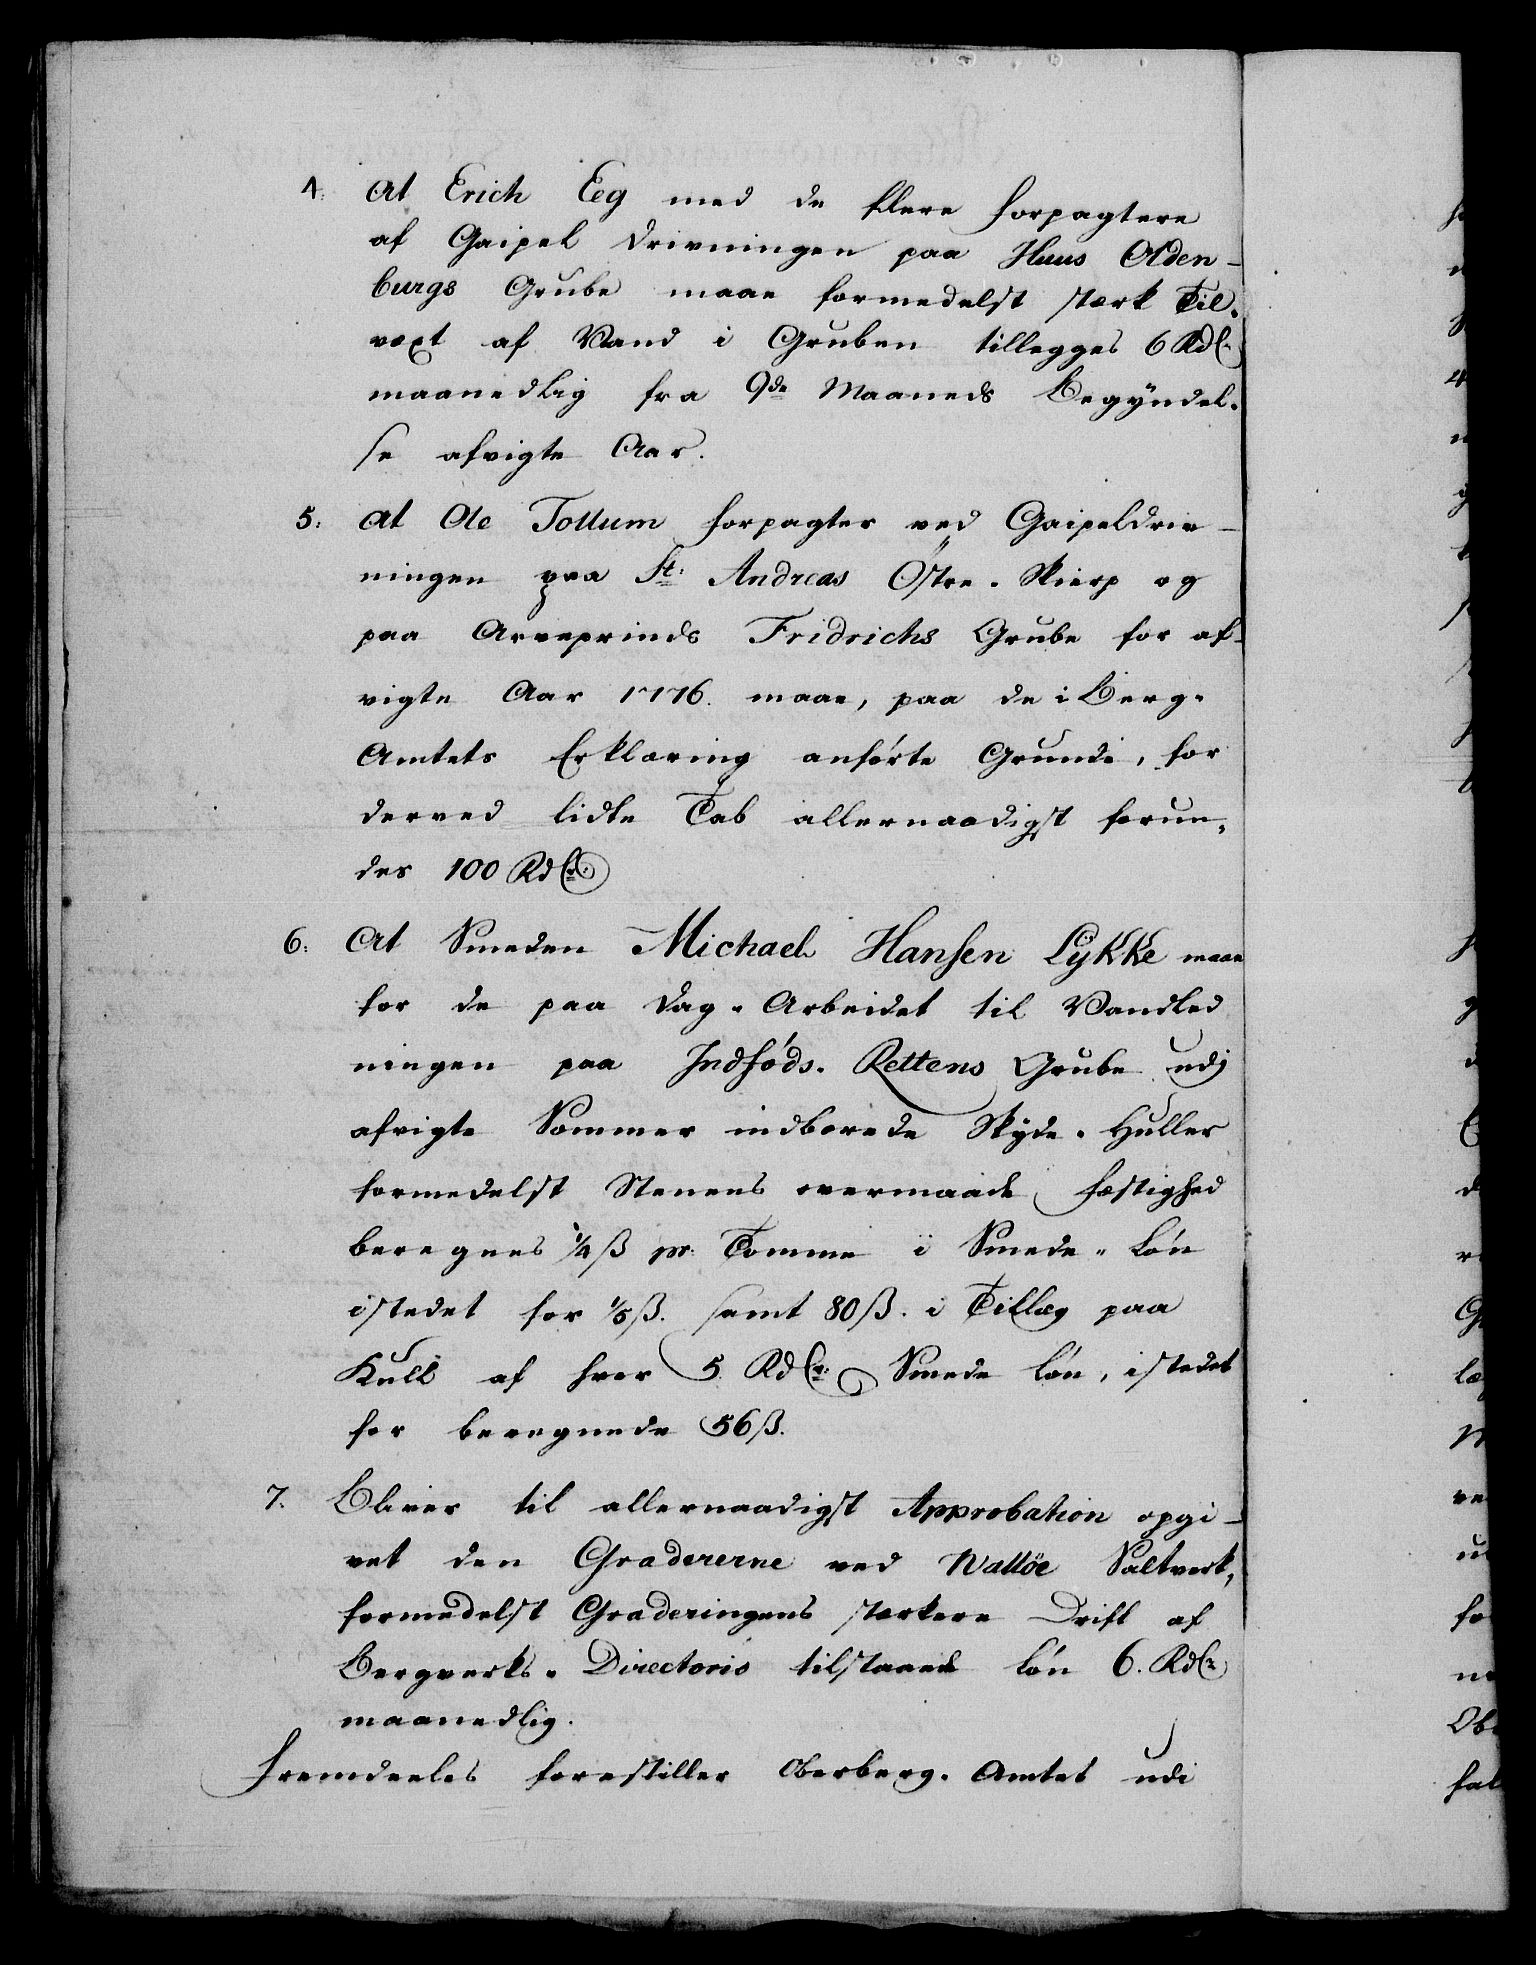 4. At Erich Eeg med de flere Forpagtere
af Gaipel Drivningen paa Huus Olden-
burgs Grube maae formedelst stærk Til-
vext af Vand i Gruben tillegges 6 Rdlr
maanedlig fra 9de Maaneds Begyndel-
se afvigte Aar.
5. At Ole Tollum Forpagter ved Gaipeldriv-
ningen paa St: Andreas Østre-Skierp og
paa Arveprinds Fridrichs Grube for af-
vigte Aar 1776. maae, paa de i Berg-
Amtets Erklæring anførte Grunde, for
derved lidte Tab allernaadigst forun-
des 100 Rdlr.
6. At Smeden Michael Hansen Lykke maae
for de paa Dag-Arbeidet til Vandled
ningen paa Indføds-Rettens Grube udj
afvigte Sommer indborede Skyde-Huller
formedelst Stenens overmaade Fæstighed
beregnes 1/4 ß pr: Tomme i Smede-Løn
istedet for 1/5 ß. samt 80 ß. i Tillæg paa
Kull af hver 5 Rdlr: Smede Løn, istedet
for beregnede 56 ß.
7. Bliver til allernaadigst Approbation opgi-
vet den Gradererne ved Walløe Saltverk,
formedelst Graderingens stærkere Drift af
Bergverks-Directoris tilstaaede Løn 6. Rdlr
maanedlig.
Fremdeeles forestiller Oberberg-Amtet udi